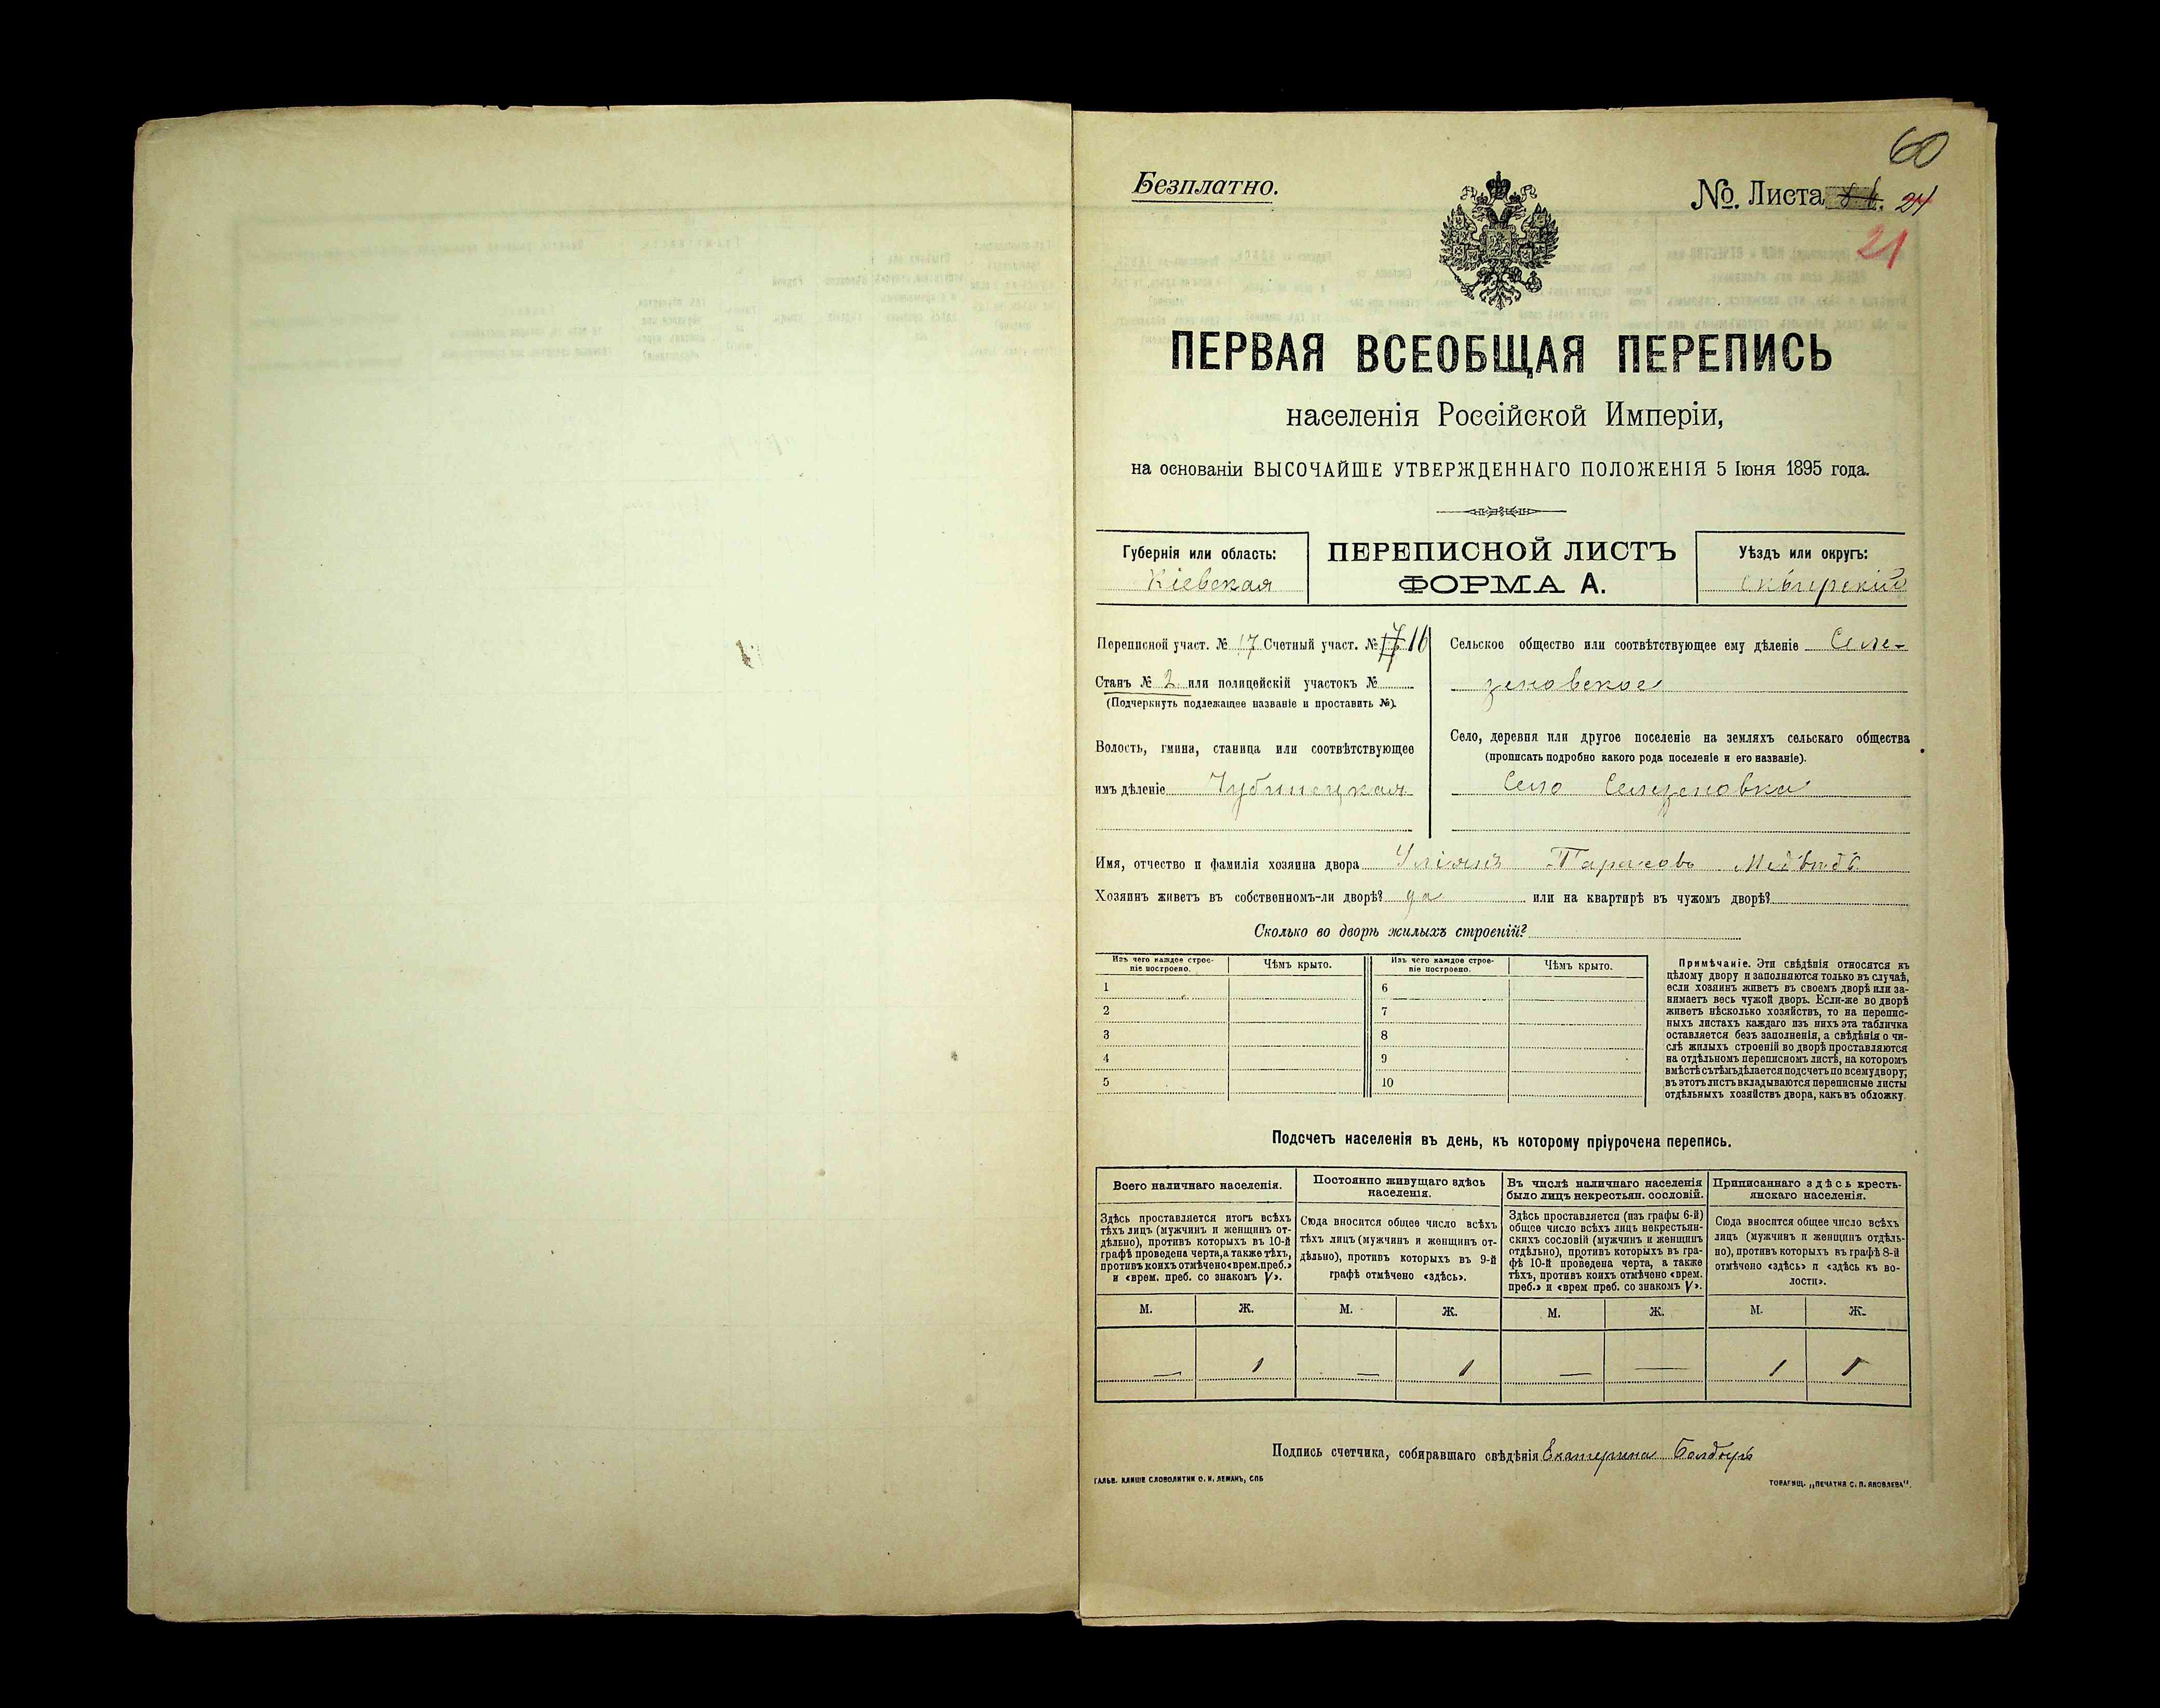 60
Безплатно.
№. Листа 24
21
ПЕРВАЯ ВСЕОБЩАЯ ПЕРЕПИСЬ
населенія Россійской Имперіи,
на основаніи ВЫСОЧАЙШЕ УТВЕРЖДЕННАГО ПОЛОЖЕНІЯ 5 Іюня 1895 года.
Губернія или область:
Кіевская
ПЕРЕПИСНОЙ ЛИСТЪ
ФОРМА А.
Уѣздъ или округъ:
Сквирскій
Переписной участ. № 17 Счетный участ. № 16
Станъ № 2 или полицейскій участокъ №
(Подчеркнуть подлежащее названіе и проставить №).
Волость, гмина, станица или соотвѣтствующее
имъ дѣленіе Чубинецкая
Сельское общество или соотвѣтствующее ему дѣленіе Селе-
зеновское
Село, деревня или другое поселеніе на земляхъ сельскаго общества
(прописать подробно какого рода поселеніе и его названіе).
Село Селезеновка
Имя, отчество и фамилія хозяина двора Уліянъ Тарасовъ Медвѣдь
Хозяинъ живетъ въ собственномъ-ли дворѣ? да или на квартирѣ въ чужомъ дворѣ?
Сколько во дворѣ жилыхъ строеній?
Изъ чего каждое строе-
ніе построено.
Чѣмъ крыто.
Изъ чего каждое строе-
ніе построено.
Чѣмъ крыто.
1 6
2 7
3 8
4 9
5 10
Примѣчаніе. Эти свѣдѣнія относятся къ
цѣлому двору и заполняются только въ случаѣ,
если хозяинъ живетъ въ своемъ дворѣ или за-
нимаетъ весь чужой дворъ. Если-же во дворѣ
живетъ нѣсколько хозяйствъ, то на перепис-
ныхъ листахъ каждаго изъ нихъ эта табличка
оставляется безъ заполненія, а свѣдѣнія о чи-
слѣ жилыхъ строеній во дворѣ проставляются
на отдѣльномъ переписномъ листѣ, на которомъ
вмѣстѣ съ тѣмъ дѣлается подсчетъ по всему двору;
въ этотъ листъ вкладываются переписные листы
отдѣльныхъ хозяйствъ двора, какъ въ обложку.
Подсчетъ населенія въ день, къ которому пріурочена перепись.
Всего наличнаго населенія.
Здѣсь проставляется итогъ всѣхъ
тѣхъ лицъ (мужчинъ и женщинъ от-
дѣльно), противъ которыхъ въ 10-й
графѣ проведена черта, а также тѣхъ,
противъ коихъ отмѣчено «врем. преб.»
и «врем. преб. со знакомъ V».
Постоянно живущаго здѣсь
населенія.
Сюда вносится общее число всѣхъ
тѣхъ лицъ (мужчинъ и женщинъ от-
дѣльно), противъ которыхъ въ 9-й
графѣ отмѣчено «здѣсь».
Въ числѣ наличнаго населенія
было лицъ некрестьян. сословій.
Здѣсь проставляется (изъ графы 6-й)
общее число всѣхъ лицъ некрестьян-
скихъ сословій (мужчинъ и женщинъ
отдѣльно), противъ которыхъ въ гра-
фѣ 10-й проведена черта, а также
тѣхъ, противъ коихъ отмѣчено «врем.
преб.» и «врем преб. со знакомъ V».
Приписаннаго здѣсь кресть-
янскаго населенія.
Сюда вносится общее число всѣхъ
лицъ (мужчинъ и женщинъ отдѣль-
но), противъ которыхъ въ графѣ 8-й
отмѣчено «здѣсь» и «здѣсь къ во-
лости».
М. Ж. М. Ж. М. Ж. М. Ж.
— 1 — 1 — — 1 1
Подпись счетчика, собиравшаго свѣдѣнія Екатерина
ГАЛЬВ. КЛИШЕ СЛОВОЛИТНИ О. И. ЛЕМАНЪ, СПБ
ТОВАРИЩ. „ПЕЧАТНЯ С. П. ЯКОВЛЕВА".